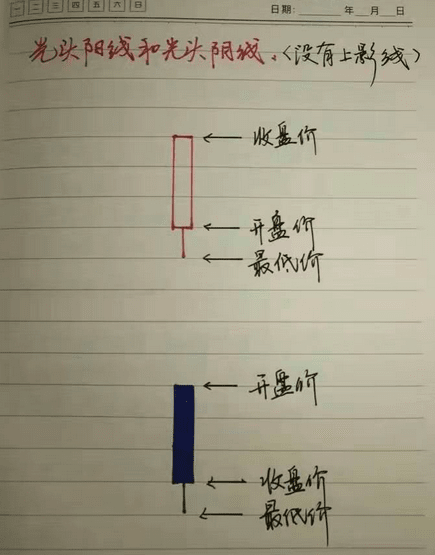 一 二 三 四 五 六 日 日期: 年 月 日
光头阳线和光头阴线。(没有上影线)
收盘价
开盘价
最低价
开盘价
收盘价
最低价